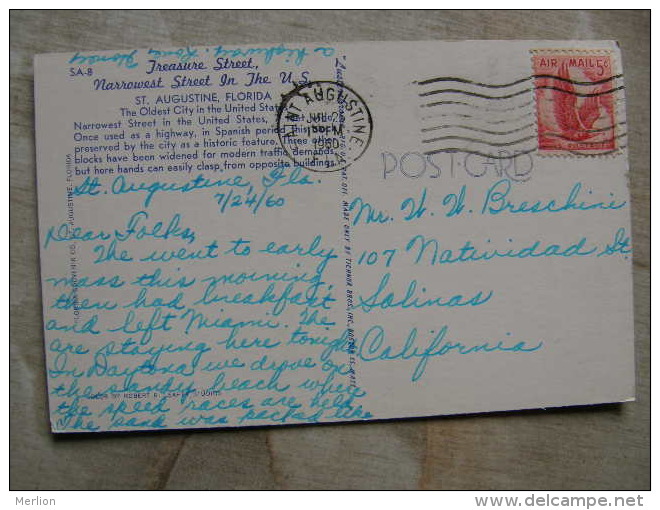 a highway. Love, Honey
SA-8
Treasure Street,
Narrowest Street In The U.S.
ST. AUGUSTINE, FLORIDA
The Oldest City in the United States
Narrowest Street in the United States,
Once used as a highway, in Spanish period, this
preserved by the city as a historic feature. Three other
blocks have been widened for modern traffic demands,
but here hands can easily clasp from opposite buildings.
St. Augustine, Fla.
7/24/60
Dear Folks,
The went to early
mass this morning,
then had breakfast
and left Miami. The
are staying here tonight
In Daytona we drove on
the sandy beach where
the speed races are held
The sand was packed like
COLOR BY ROBERT
ST. AUGUSTINE, FLORIDA
MADE ONLY BY TICHNOR BROS., INC., BOSTON
SAINT AUGUSTINE
JUL
1960
AIR MAIL 5¢
POST CARD
Mr. W. W. Breschini
107 Natividad St.
Salinas
California
Merlion
www.delcampe.net